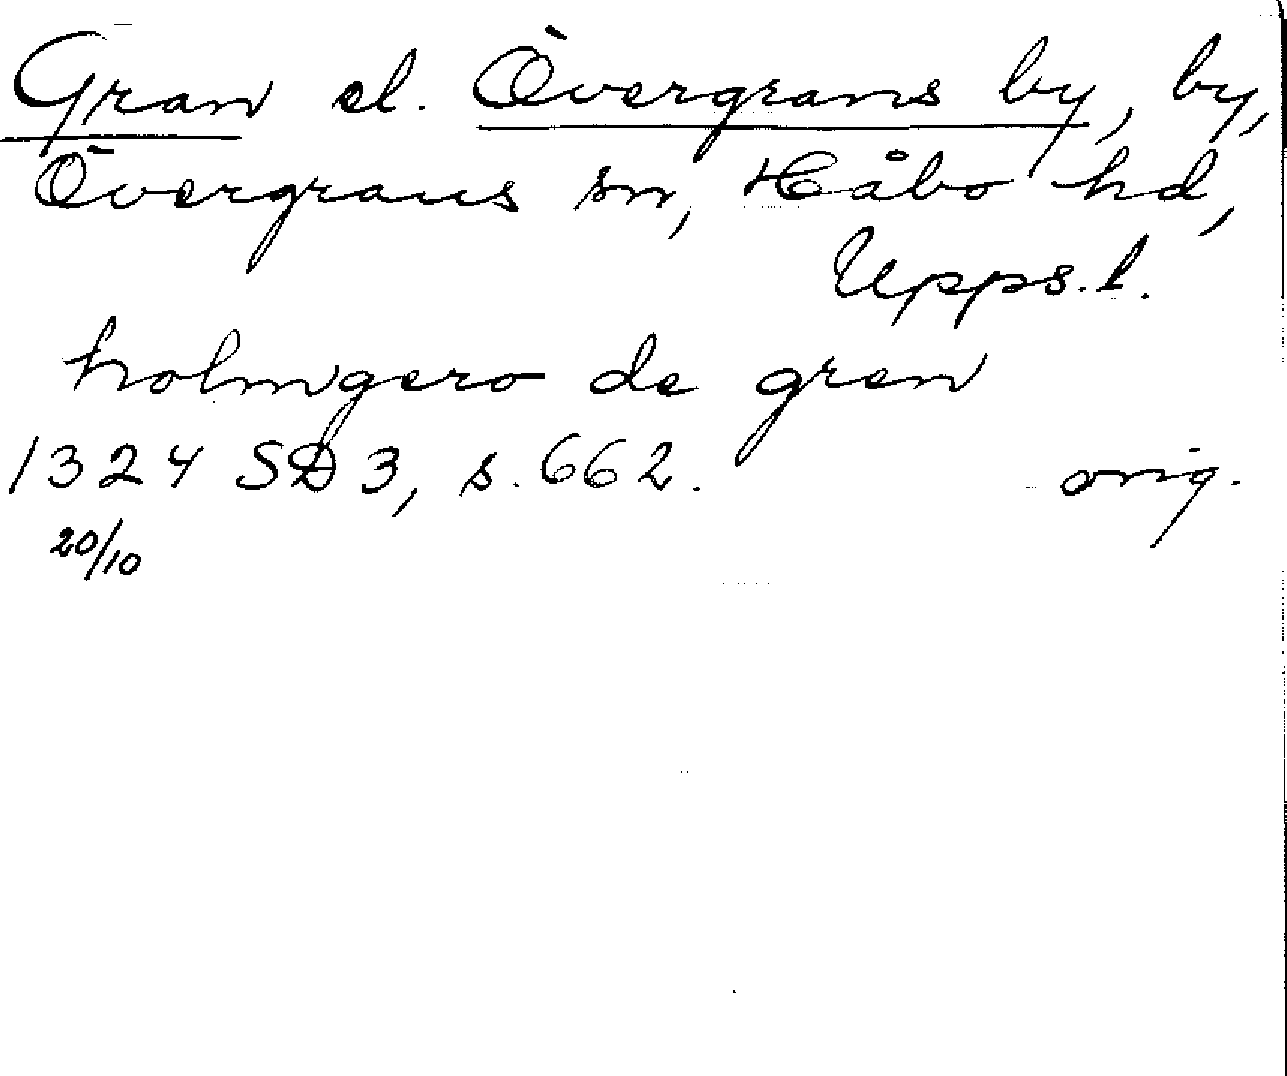 Gran el. Övergrans by, by,
Övergrans sn, Håbo hd,
Upps. l.
holmgero de gren
1324 SD 3, s. 662. orig.
20/10